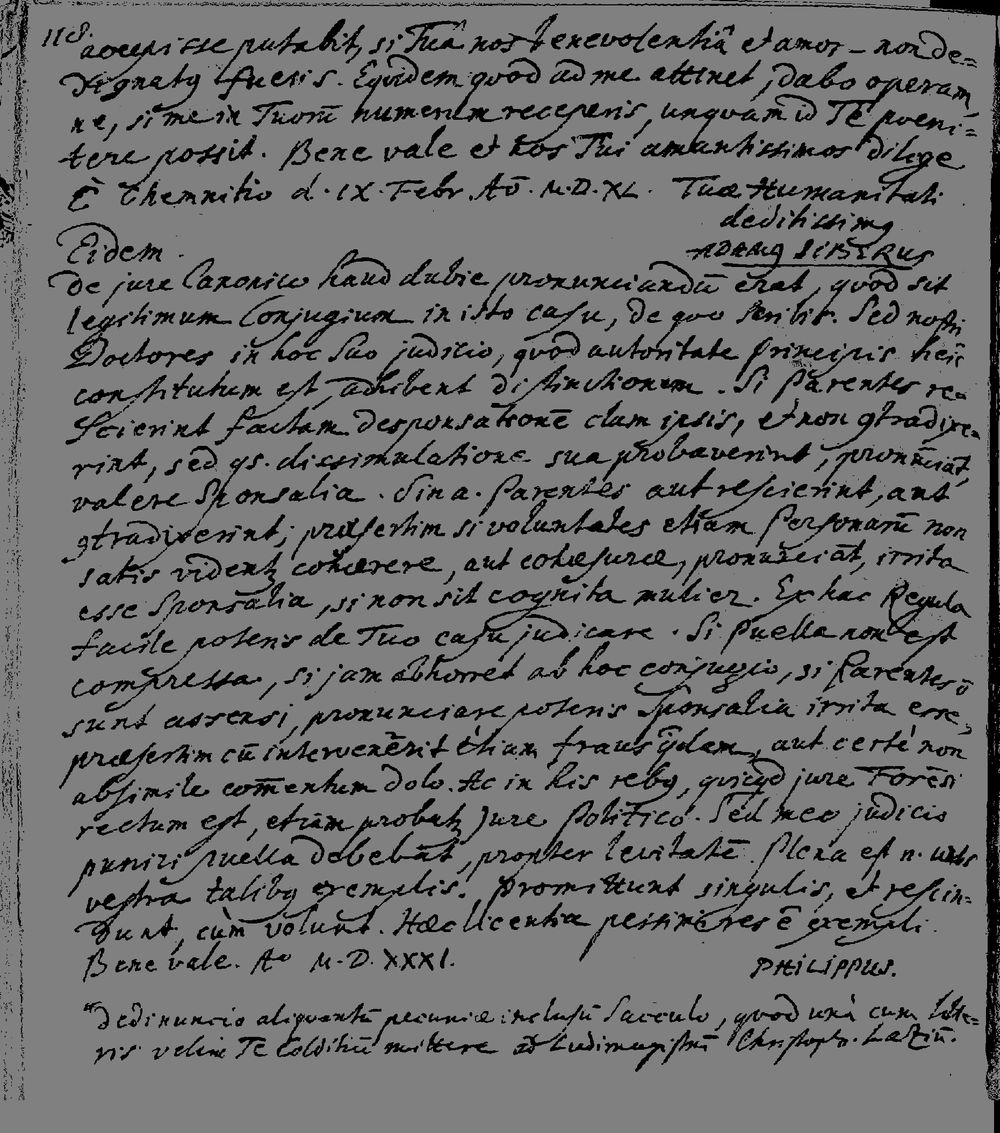 118.
accepisse putabit, si Tuâ nos benevolentiâ et amor– non de=
dignatq fueris. Equidem quod ad me attinet, dabo operam,
ne, si me in Tuorū numerum receperis, unquam id Te poeni=
tere possit. Bene vale et nos Tui amantissimos dilige
È Chemnitio d. IX. Febr. Aō. M.D.XL. Tuæ Humanitati
deditissimq
ADAMq SIBERUS
Eidem.
De jure Canonico haud dubie pronunciandū erat, quod sit
legitimum Conjugium in isto casu, de quo scribis. Sed nostri
Doctores in hoc suo judicio, quod autoritate Principis heic
constitutum est, adhibent distinctionem. Si Parentes re=
scierint factam desponsationē clam ipsis, et non gtradixe=
rint, sed qs. dissimulatione sua probaverint, pronūciāt,
valere Sponsalia. Sin a. Parentes aut rescierint, aut
gtradixerint; præsertim si voluntates etiam Personarū non
satis vident cohærere, aut cohæsuræ, pronunciāt, irrita
esse Sponsalia, si non sit cognita mulier. Ex hac Regula
facile poteris de Tuo casu judicare. Si Puella non est
compressa, si jam abhorret ab hoc conjugio, si Parentes ō
sunt assensi, pronunciare poteris Sponsalia irrita esse,
præsertim cū intervenērit etiam fraus qdam, aut certè non
absimile com̄entum dolo. Ac in his rebq, quicqd jure Forēsi
rectum est, etiam probat Jure Politico. Sed meo judicio
puniri puella debebāt, propter levitatē. Plena est n. urbs
vestra talibq exemplis. Promittunt singulis, et rescin=
dunt, cùm volunt. Hæc licentia pessimi res ē exempli.
Bene vale. Ao M.D.XXXI.
PHILIPPUS.
Dedi nuncio aliquantū pecuniæ inclusū Sacculo, quod unà cum lite=
ris velim Te Colditiū mittere ad Ludimagistrū Christoph.